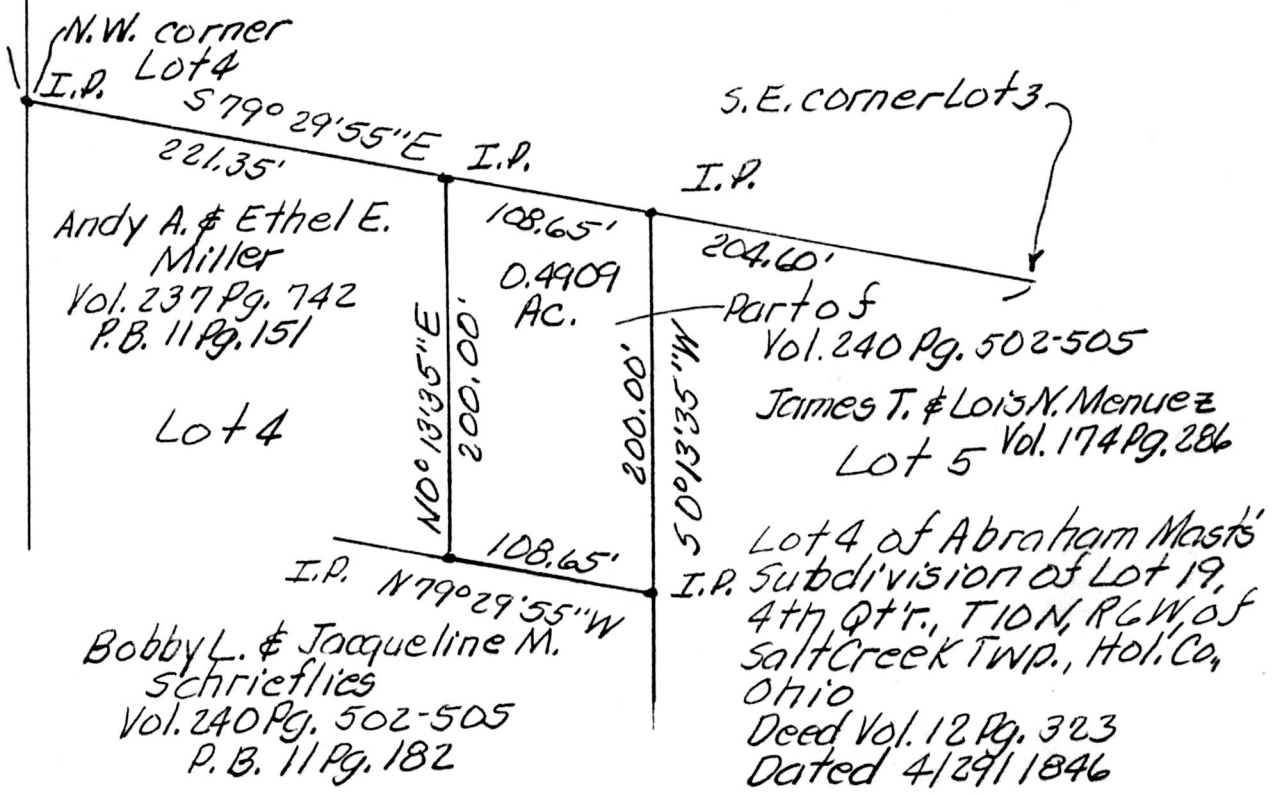 N.W. corner
Lot 4
I.P.
S 79° 29'55"E
221.35'
I.P.
I.P.
S.E. corner Lot 3
108.65'
204.60'
Andy A. & Ethel E.
Miller
Vol. 237 Pg. 742
P.B. 11 Pg. 151
Lot 4
N0° 13'35"E
200.00'
0.4909
Ac.
200.00'
S 0°13'35"W
Part of
Vol. 240 Pg. 502-505
James T. & Lois N. Menuez
Lot 5 Vol. 174 Pg. 286
I.P.
108.65'
N79°29'55"W
I.P.
Bobby L. & Jacqueline M.
Schrieflies
Vol. 240 Pg. 502-505
P.B. 11 Pg. 182
Lot 4 of Abraham Masts'
Subdivision of Lot 19,
4th Qt'r., T10N, R6W, of
Salt Creek Twp., Hol. Co.,
Ohio
Deed Vol. 12 Pg. 323
Dated 4/29/1846